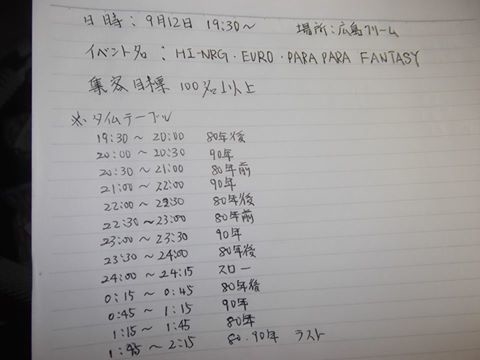 日時：9月12日 19:30～ 場所：広島クリーム
イベント名：HI-NRG・EURO・PARA PARA FANTASY
集客目標 100名以上
※タイムテーブル
19:30～20:00 80年後
20:00～20:30 90年
20:30～21:00 80年前
21:00～22:00 90年
22:00～22:30 80年後
22:30～23:00 80年前
23:00～23:30 90年
23:30～24:00 80年後
24:00～24:15 スロー
0:15～0:45 80年後
0:45～1:15 90年
1:15～1:45 80年
1:45～2:15 80.90年 ラスト